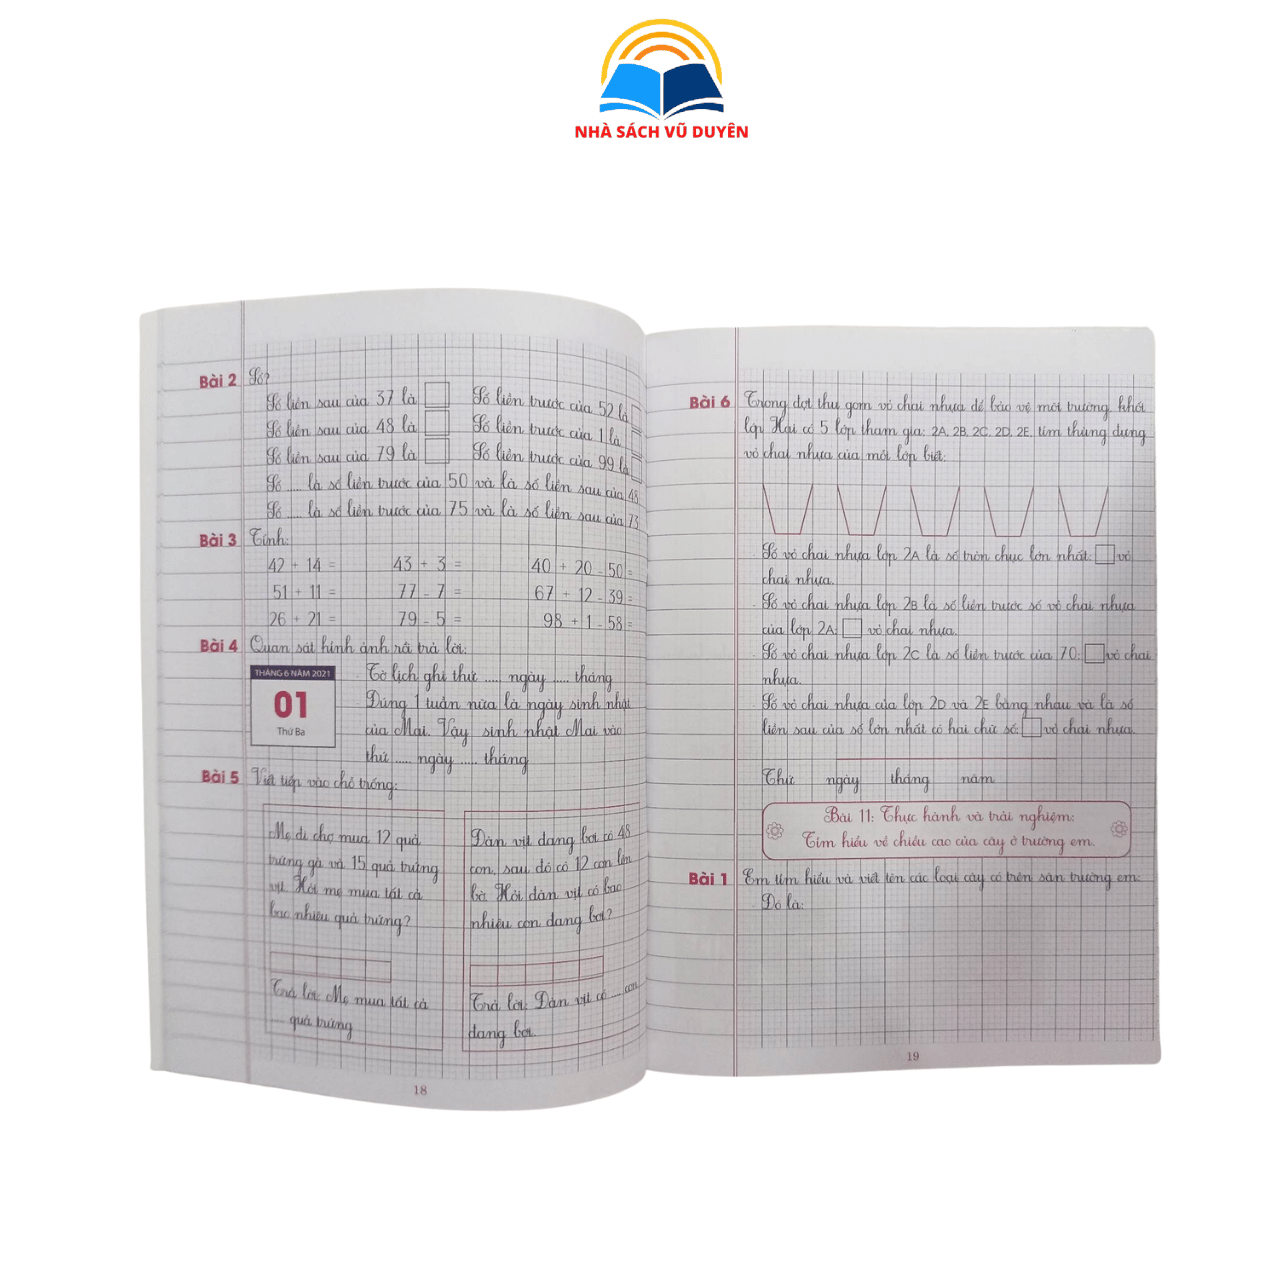 NHÀ SÁCH VŨ DUYÊN
Bài 2 Số?
Số liền sau của 37 là
Số liền trước của 52 là
Số liền sau của 48 là
Số liền trước của 1 là
Số liền sau của 79 là
Số liền trước của 99 là
Số .... là số liền trước của 50 và là số liền sau của 48
Số .... là số liền trước của 75 và là số liền sau của 73
Bài 3 Tính:
42 + 14 = 43 + 3 = 40 + 20 - 50 =
51 + 11 = 77 - 7 = 67 + 12 - 39 =
26 + 21 = 79 - 5 = 98 + 1 - 58 =
Bài 4 Quan sát hình ảnh rồi trả lời:
THÁNG 6 NĂM 2021
01
Thứ Ba
Tờ lịch ghi thứ ..... ngày ..... tháng
Đúng 1 tuần nữa là ngày sinh nhật
của Mai. Vậy sinh nhật Mai vào
thứ ..... ngày ..... tháng
Bài 5 Viết tiếp vào chỗ trống:
Mẹ đi chợ mua 12 quả
trứng gà và 15 quả trứng
vịt. Hỏi mẹ mua tất cả
bao nhiêu quả trứng?
Trả lời: Mẹ mua tất cả
.... quả trứng
Đàn vịt đang bơi có 48
con, sau đó có 12 con lên
bờ. Hỏi đàn vịt có bao
nhiêu con đang bơi?
Trả lời: Đàn vịt có .... con
đang bơi.
18
Bài 6 Trong đợt thu gom vỏ chai nhựa để bảo vệ môi trường, khối
lớp Hai có 5 lớp tham gia: 2A, 2B, 2C, 2D, 2E, tìm thùng đựng
vỏ chai nhựa của mỗi lớp biết:
Số vỏ chai nhựa lớp 2A là số tròn chục lớn nhất: vỏ
chai nhựa.
Số vỏ chai nhựa lớp 2B là số liền trước số vỏ chai nhựa
của lớp 2A: vỏ chai nhựa.
Số vỏ chai nhựa lớp 2C là số liền trước của 70: vỏ chai
nhựa.
Số vỏ chai nhựa của lớp 2D và 2E bằng nhau và là số
liền sau của số lớn nhất có hai chữ số: vỏ chai nhựa.
Thứ ngày tháng năm
Bài 11: Thực hành và trải nghiệm:
Tìm hiểu về chiều cao của cây ở trường em.
Bài 1 Em tìm hiểu và viết tên các loại cây có trên sân trường em:
Đó là:
19